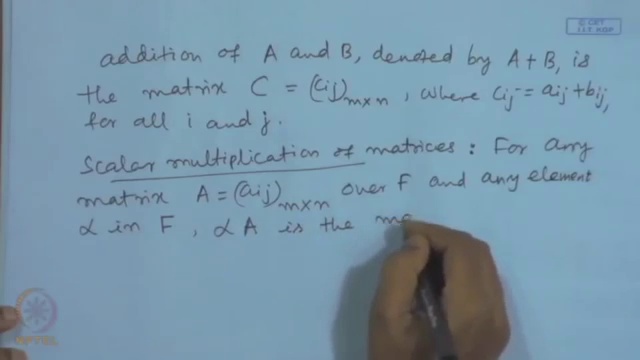 © CET
I.I.T. KGP
addition of A and B, denoted by A + B, is
the matrix C = (cij)m×n, where cij = aij + bij,
for all i and j.
Scalar multiplication of matrices: For any
matrix A = (aij)m×n over F and any element
α in F, αA is the ma
NPTEL